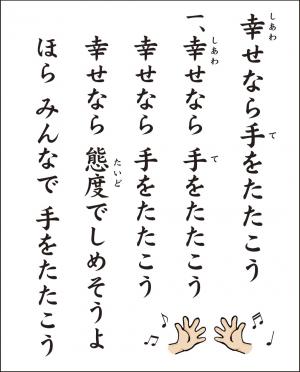 幸せなら手をたたこう
一、幸せなら 手をたたこう
幸せなら 手をたたこう
幸せなら 態度でしめそうよ
ほら みんなで 手をたたこう